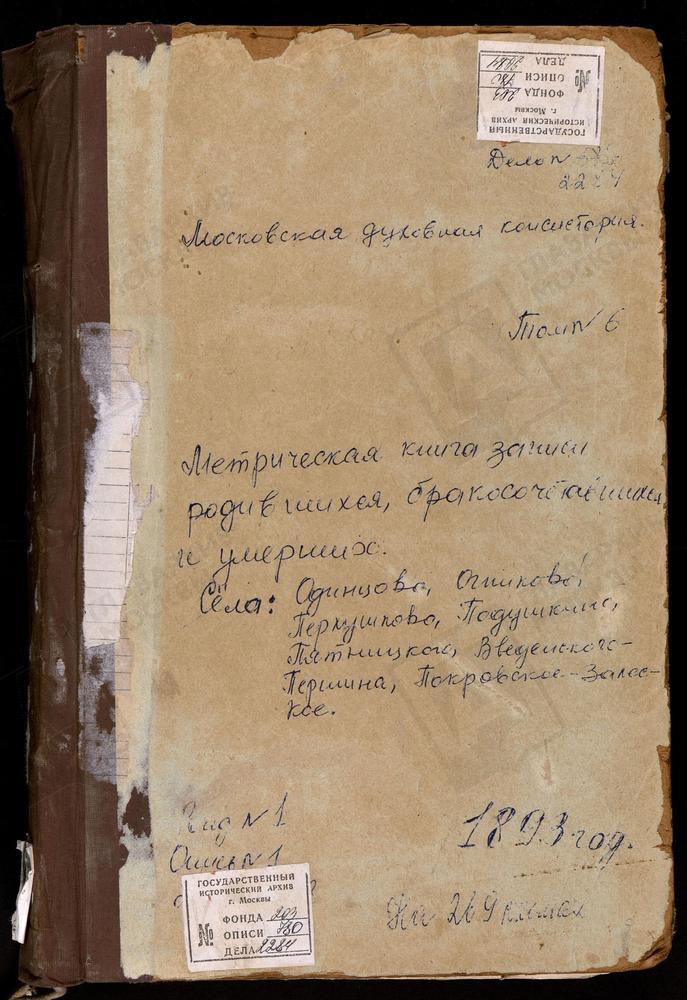 ГОСУДАРСТВЕННЫЙ
ИСТОРИЧЕСКИЙ АРХИВ
г. Москвы
ФОНДА 203
№ ОПИСИ 780
ДЕЛА 2284
Дело №
2284
Московская духовная консистория.
Том № 6
Метрическая книга записи
родившихся, бракосочетавшихся
и умерших.
Сёла: Одинцово,
Перхушково, Подушкино,
Пятницкого, Введенского-
Першина, Покровское-Засес-
кое.
№ 1
Опись № 1
1893 год.
На 269 листах
ГОСУДАРСТВЕННЫЙ
ИСТОРИЧЕСКИЙ АРХИВ
г. Москвы
ФОНДА 203
№ ОПИСИ 780
ДЕЛА 2284